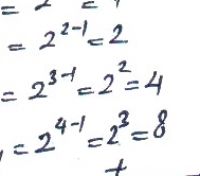 = 2^{2-1} = 2
= 2^{3-1} = 2^2 = 4
= 2^{4-1} = 2^3 = 8